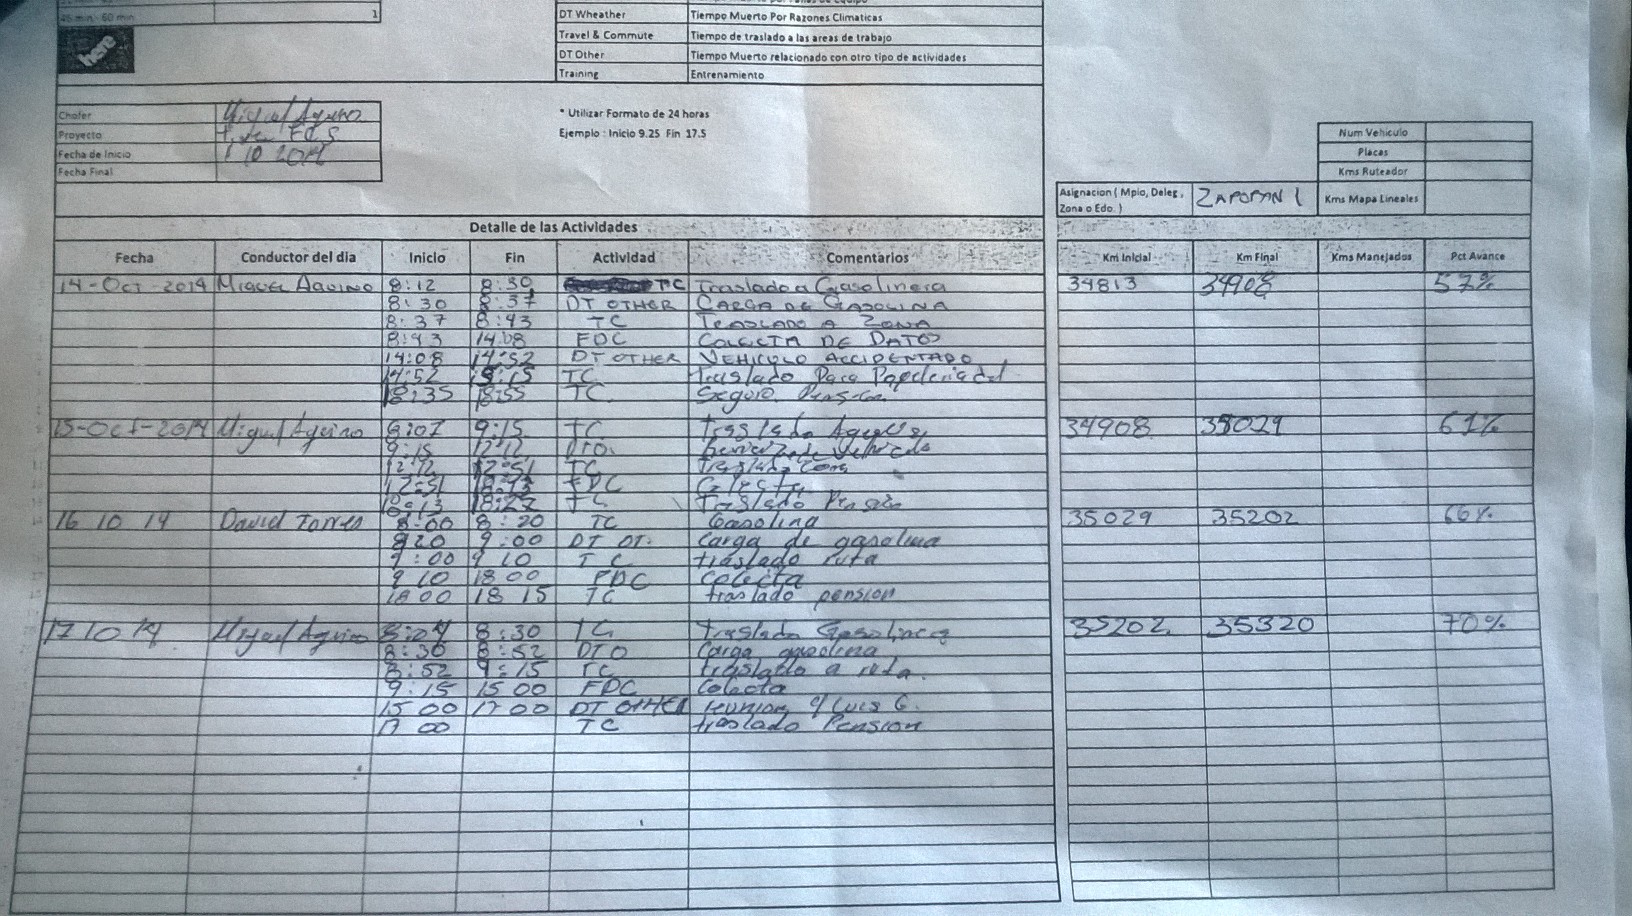 45 min - 60 min 1
DT Wheather Tiempo Muerto Por Razones Climaticas
Travel & Commute Tiempo de traslado a las areas de trabajo
DT Other Tiempo Muerto relacionado con otro tipo de actividades
Training Entrenamiento
here
Chofer Miguel Aquino
Proyecto
Fecha de Inicio 10 2014
Fecha Final
* Utilizar Formato de 24 horas
Ejemplo : Inicio 9.25 Fin 17.5
Num Vehiculo
Placas
Kms Ruteador
Asignacion ( Mpio, Deleg, Zona o Edo. ) ZAPOPAN 1 Kms Mapa Lineales
Detalle de las Actividades
Fecha Conductor del dia Inicio Fin Actividad Comentarios Km Inicial Km Final Kms Manejados Pct Avance
14-Oct-2014 Miguel Aquino 8:12 8:30 TC Traslado a Gasolinera 34813 34908 57%
8:30 8:37 DT OTHER CARGA DE GASOLINA
8:37 8:43 TC TRASLADO A ZONA
8:43 14:08 FDC COLECTA DE DATOS
14:08 14:52 DT OTHER VEHICULO ACCIDENTADO
14:52 TC Traslado Para
18:35 18:55 TC. Seguro.
15-Oct-2014 Miguel Aquino 8:07 9:15 TC Traslado 34908 35029 61%
9:15 12:12 DTO. de Vehiculo
12:12 12:51 TC Traslado
12:51 18:13 FDC Colecta
18:13 18:27 TC Traslado Pensión
16 10 14 David Torres 8:00 8:20 TC Gasolina 35029 35202 66%
820 9:00 DT OT. Carga de gasolina
9:00 9 10 TC traslado ruta
9 10 18 00 FDC colecta
18 00 18 15 TC traslado pension
17 10 14 Miguel Aquino 8:04 8:30 TC Traslado Gasolinera 35202 35320 70%
8:30 8:52 DTO Carga gasolina
8:52 9:15 TC traslado a ruta.
9:15 15 00 FDC Colecta
15 00 17 00 DT OTHER reunion c/ Luis G.
17 00 TC traslado Pension